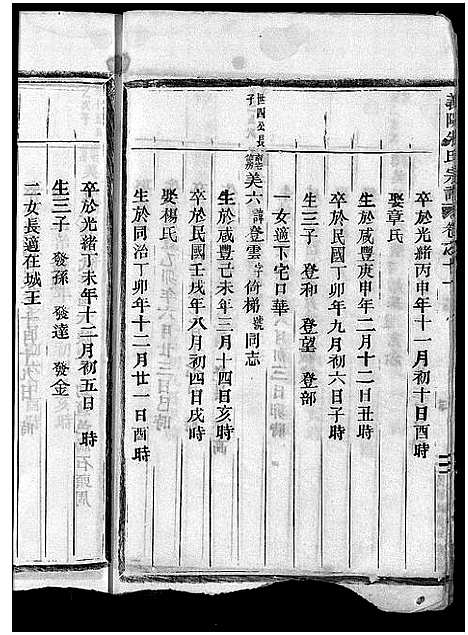 卒於光緒丙申年十一月初十日酉時
娶章氏
生於咸豐庚申年二月十二日丑時
卒於民國丁卯年九月初六日子時
生三子 登和 登望 登部
一女適下宅口華
世四公長子 美六 諱登雲 字俯梯 號同志
生於咸豐己未年三月十四日亥時
卒於民國壬戌年八月初四日戌時
娶楊氏
生於同治丁卯年十二月廿一日酉時
卒於光緒丁未年十二月初五日 時
生三子 發孫 發達 發金
二女長適在城王